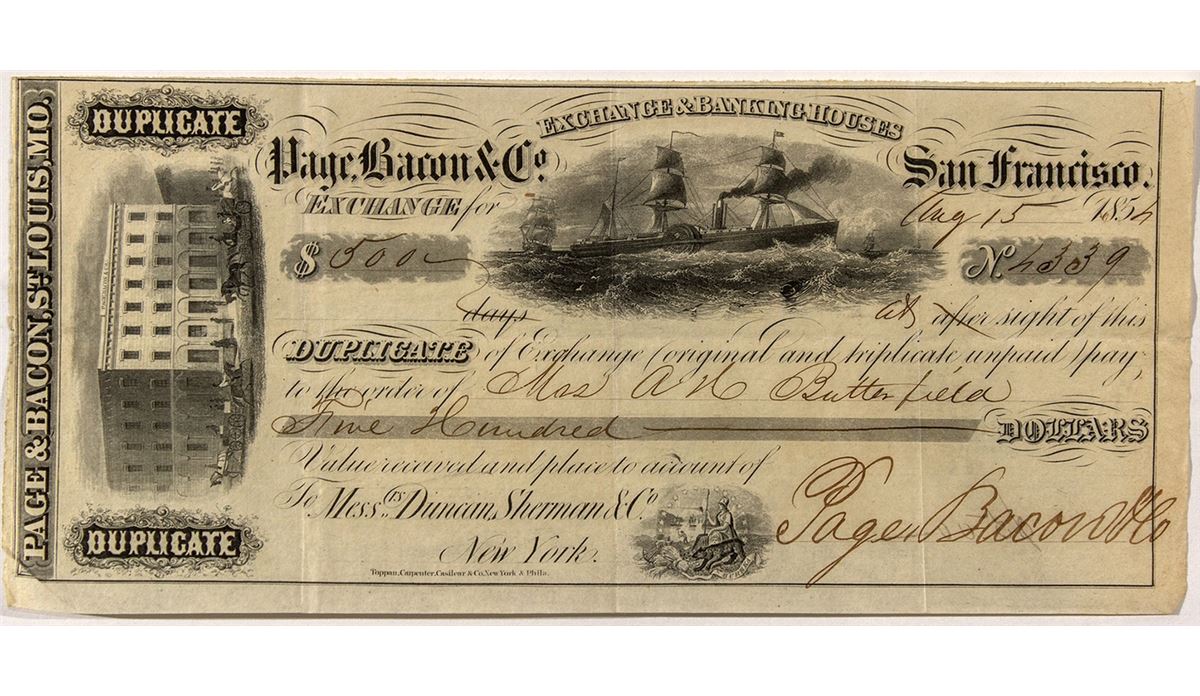 PAGE & BACON, ST. LOUIS, MO.
DUPLICATE
EXCHANGE & BANKING HOUSES
Page, Bacon & Co. San Francisco.
EXCHANGE for Aug 15 1854
$ 500 No. 4339
days at after sight of this
DUPLICATE of Exchange (original and triplicate unpaid) pay
to the order of Mrs A N Butterfield
Five Hundred DOLLARS
Value received and place to account of
To Messrs. Duncan, Sherman & Co.
New York.
Page Bacon & Co
DUPLICATE
EUREKA
Toppan, Carpenter, Casilear & Co. New York & Phila.